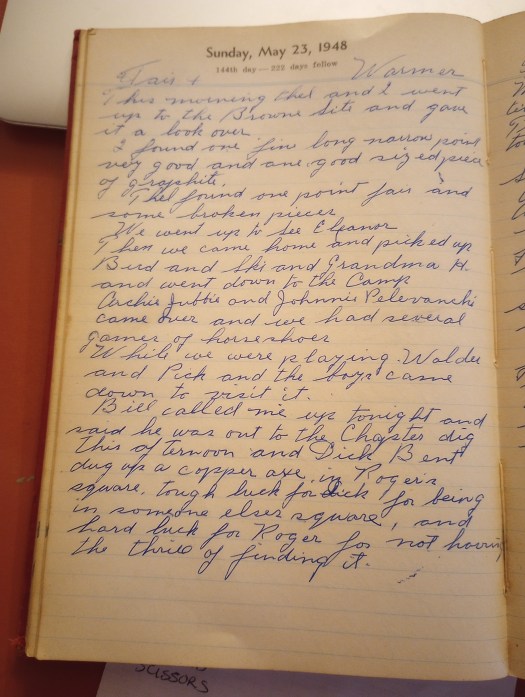 Sunday, May 23, 1948
144th day — 222 days follow
Fair + Warmer
This morning Thel and I went
up to the Browne Site and gave
it a look over
I found one fin long narrow point
very good and one good sized piece
of graphite.
Thel found one point fair and
some broken pieces
We went up to see Eleanor
Then we came home and picked up
Bird and Ski and Grandma H.
and went down to the Camp
Archie Jubbie and Johnnie
came over and we had several
games of horseshoes
While we were playing Waldee
and Pick and the boys came
down to visit it.
Bill called me up tonight and
said he was out to the Chapter dig
this afternoon and Dick Bent
dug up a copper axe in Roger's
square. tough luck for Dick for being
in someone elses square, and
hard luck for Roger for not having
the thrill of finding it.
SCISSORS